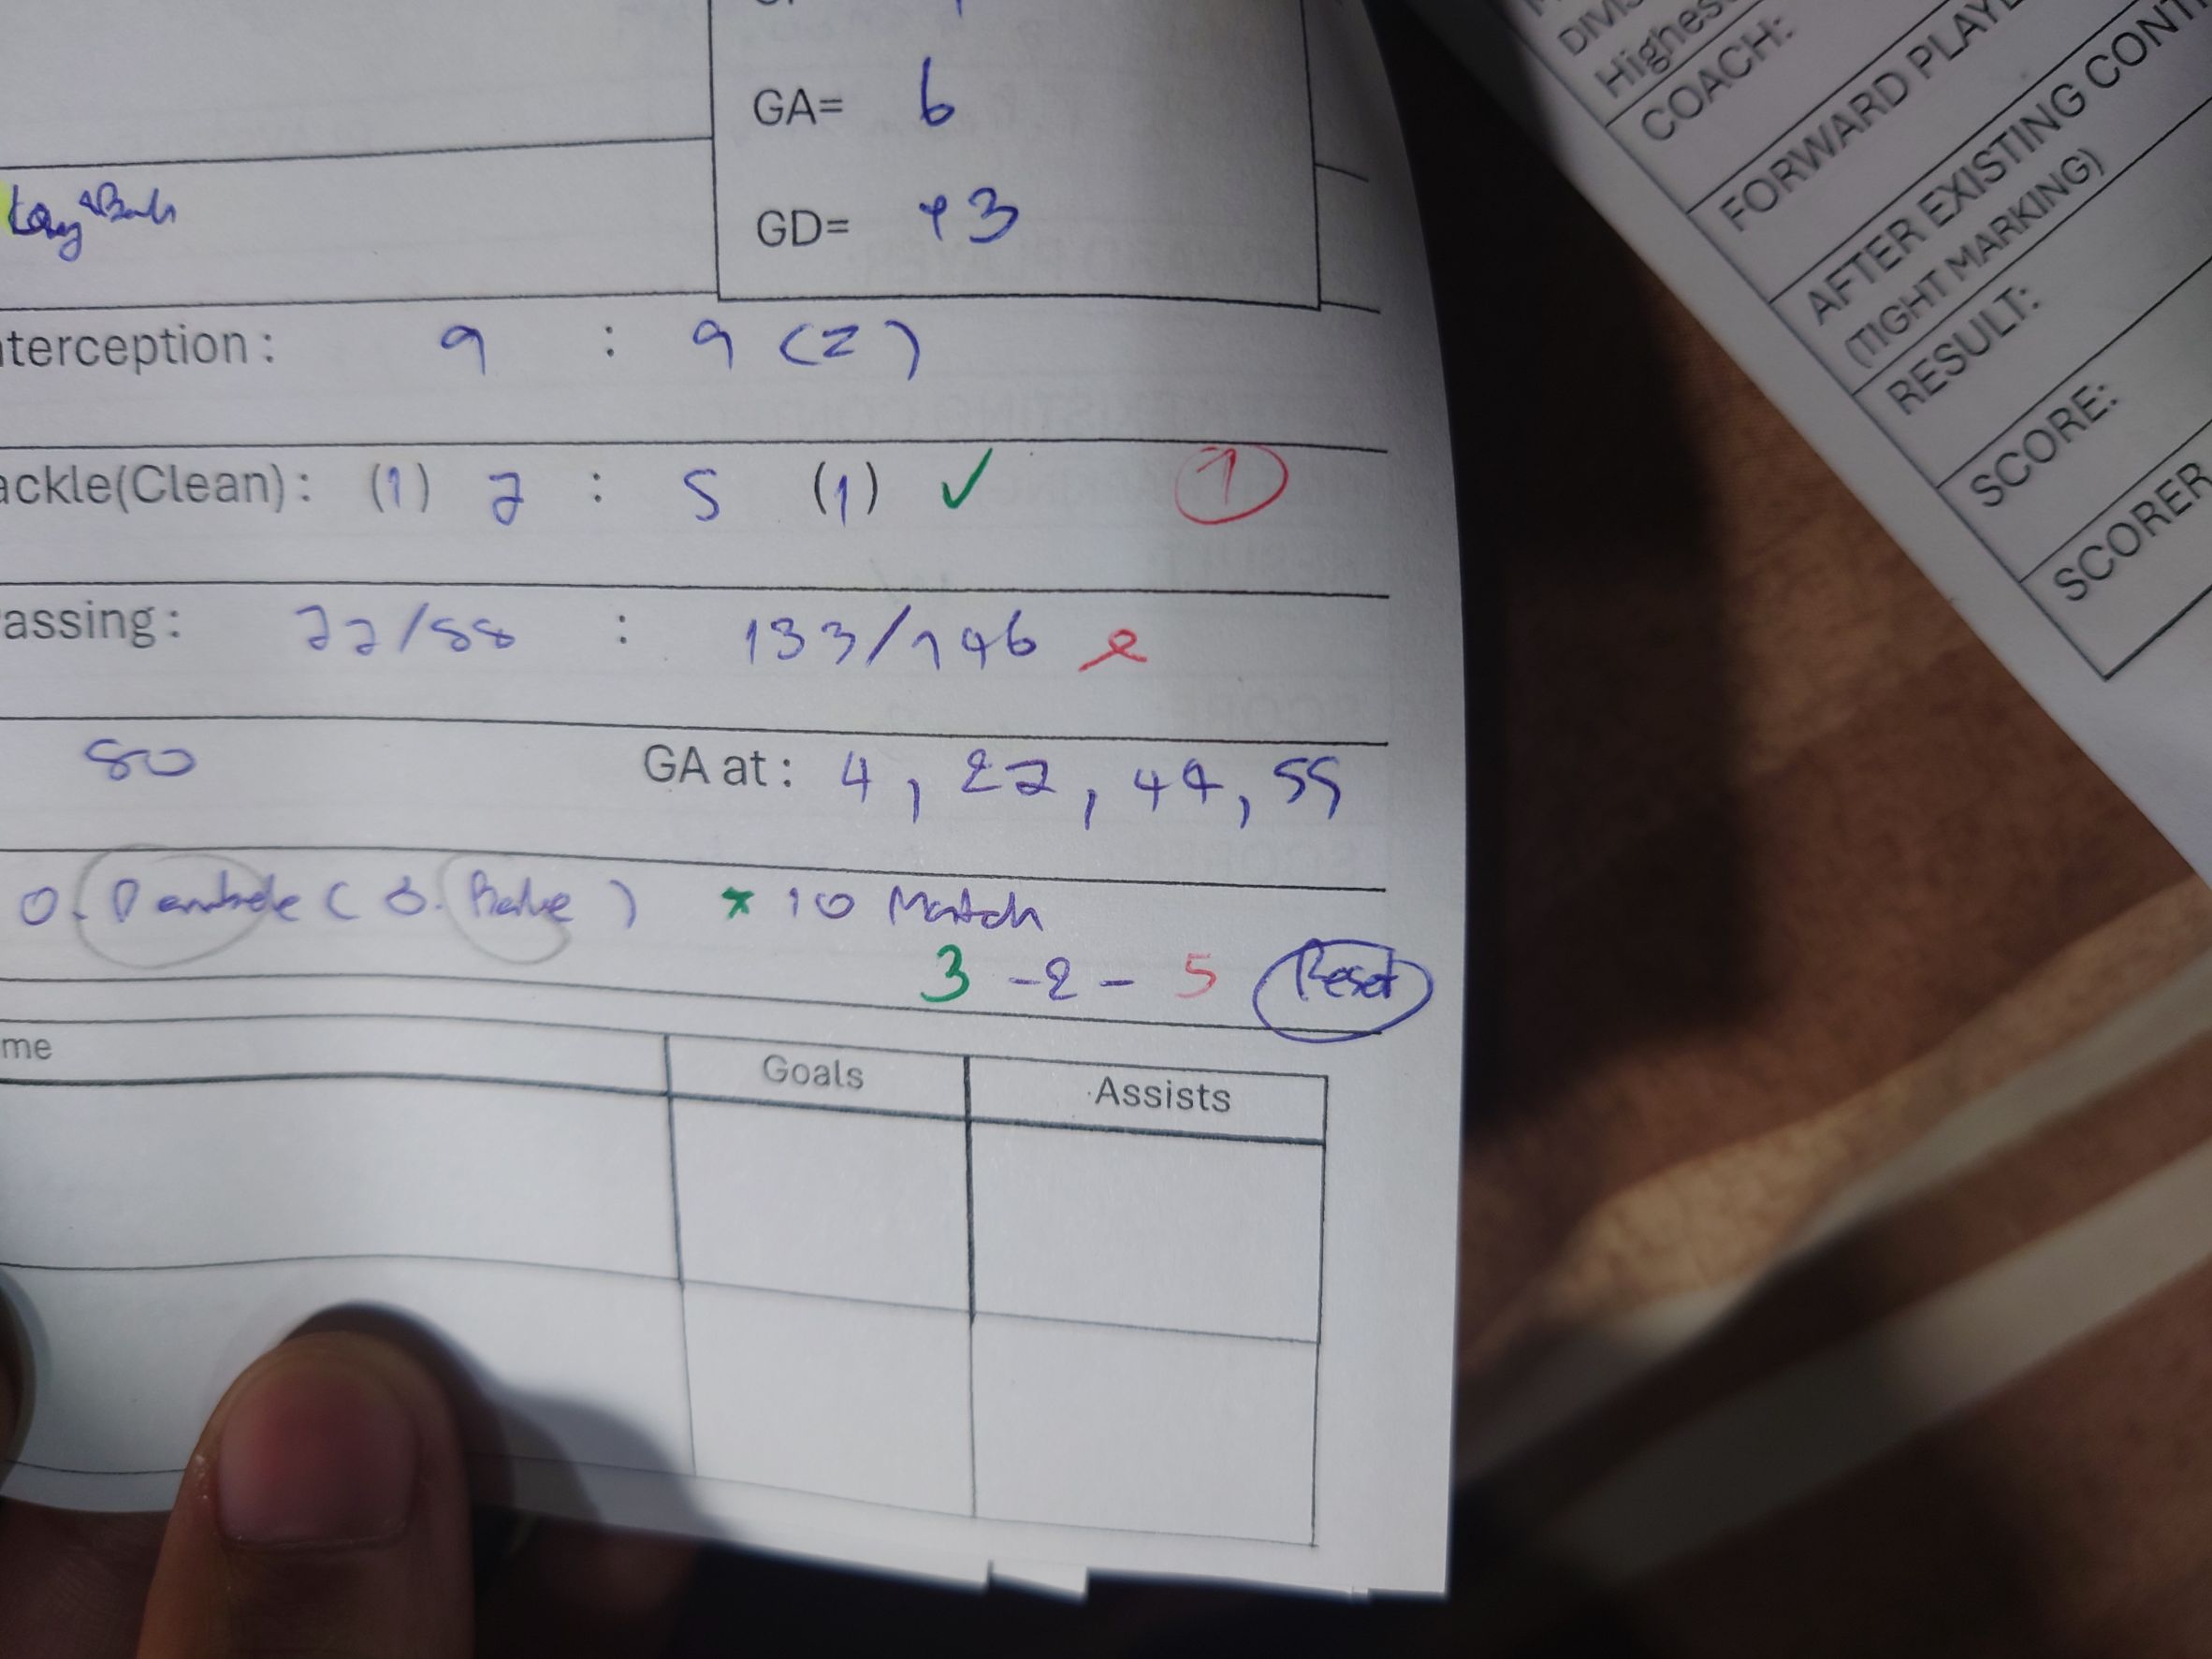 GA= 6
GD= +3
nterception: 9 : 9 (2)
ackle(Clean): (1) 2 : 5 (1) ✓ 1
assing: 72/88 : 133/146
80 GA at: 4, 22, 44, 55
O. Dembele ( ) * 10 Match
3 - 2 - 5 Reset
me Goals Assists
DIVIS
Highes
COACH:
FORWARD PLAYE
AFTER EXISTING CONT
(TIGHT MARKING)
RESULT:
SCORE:
SCORER